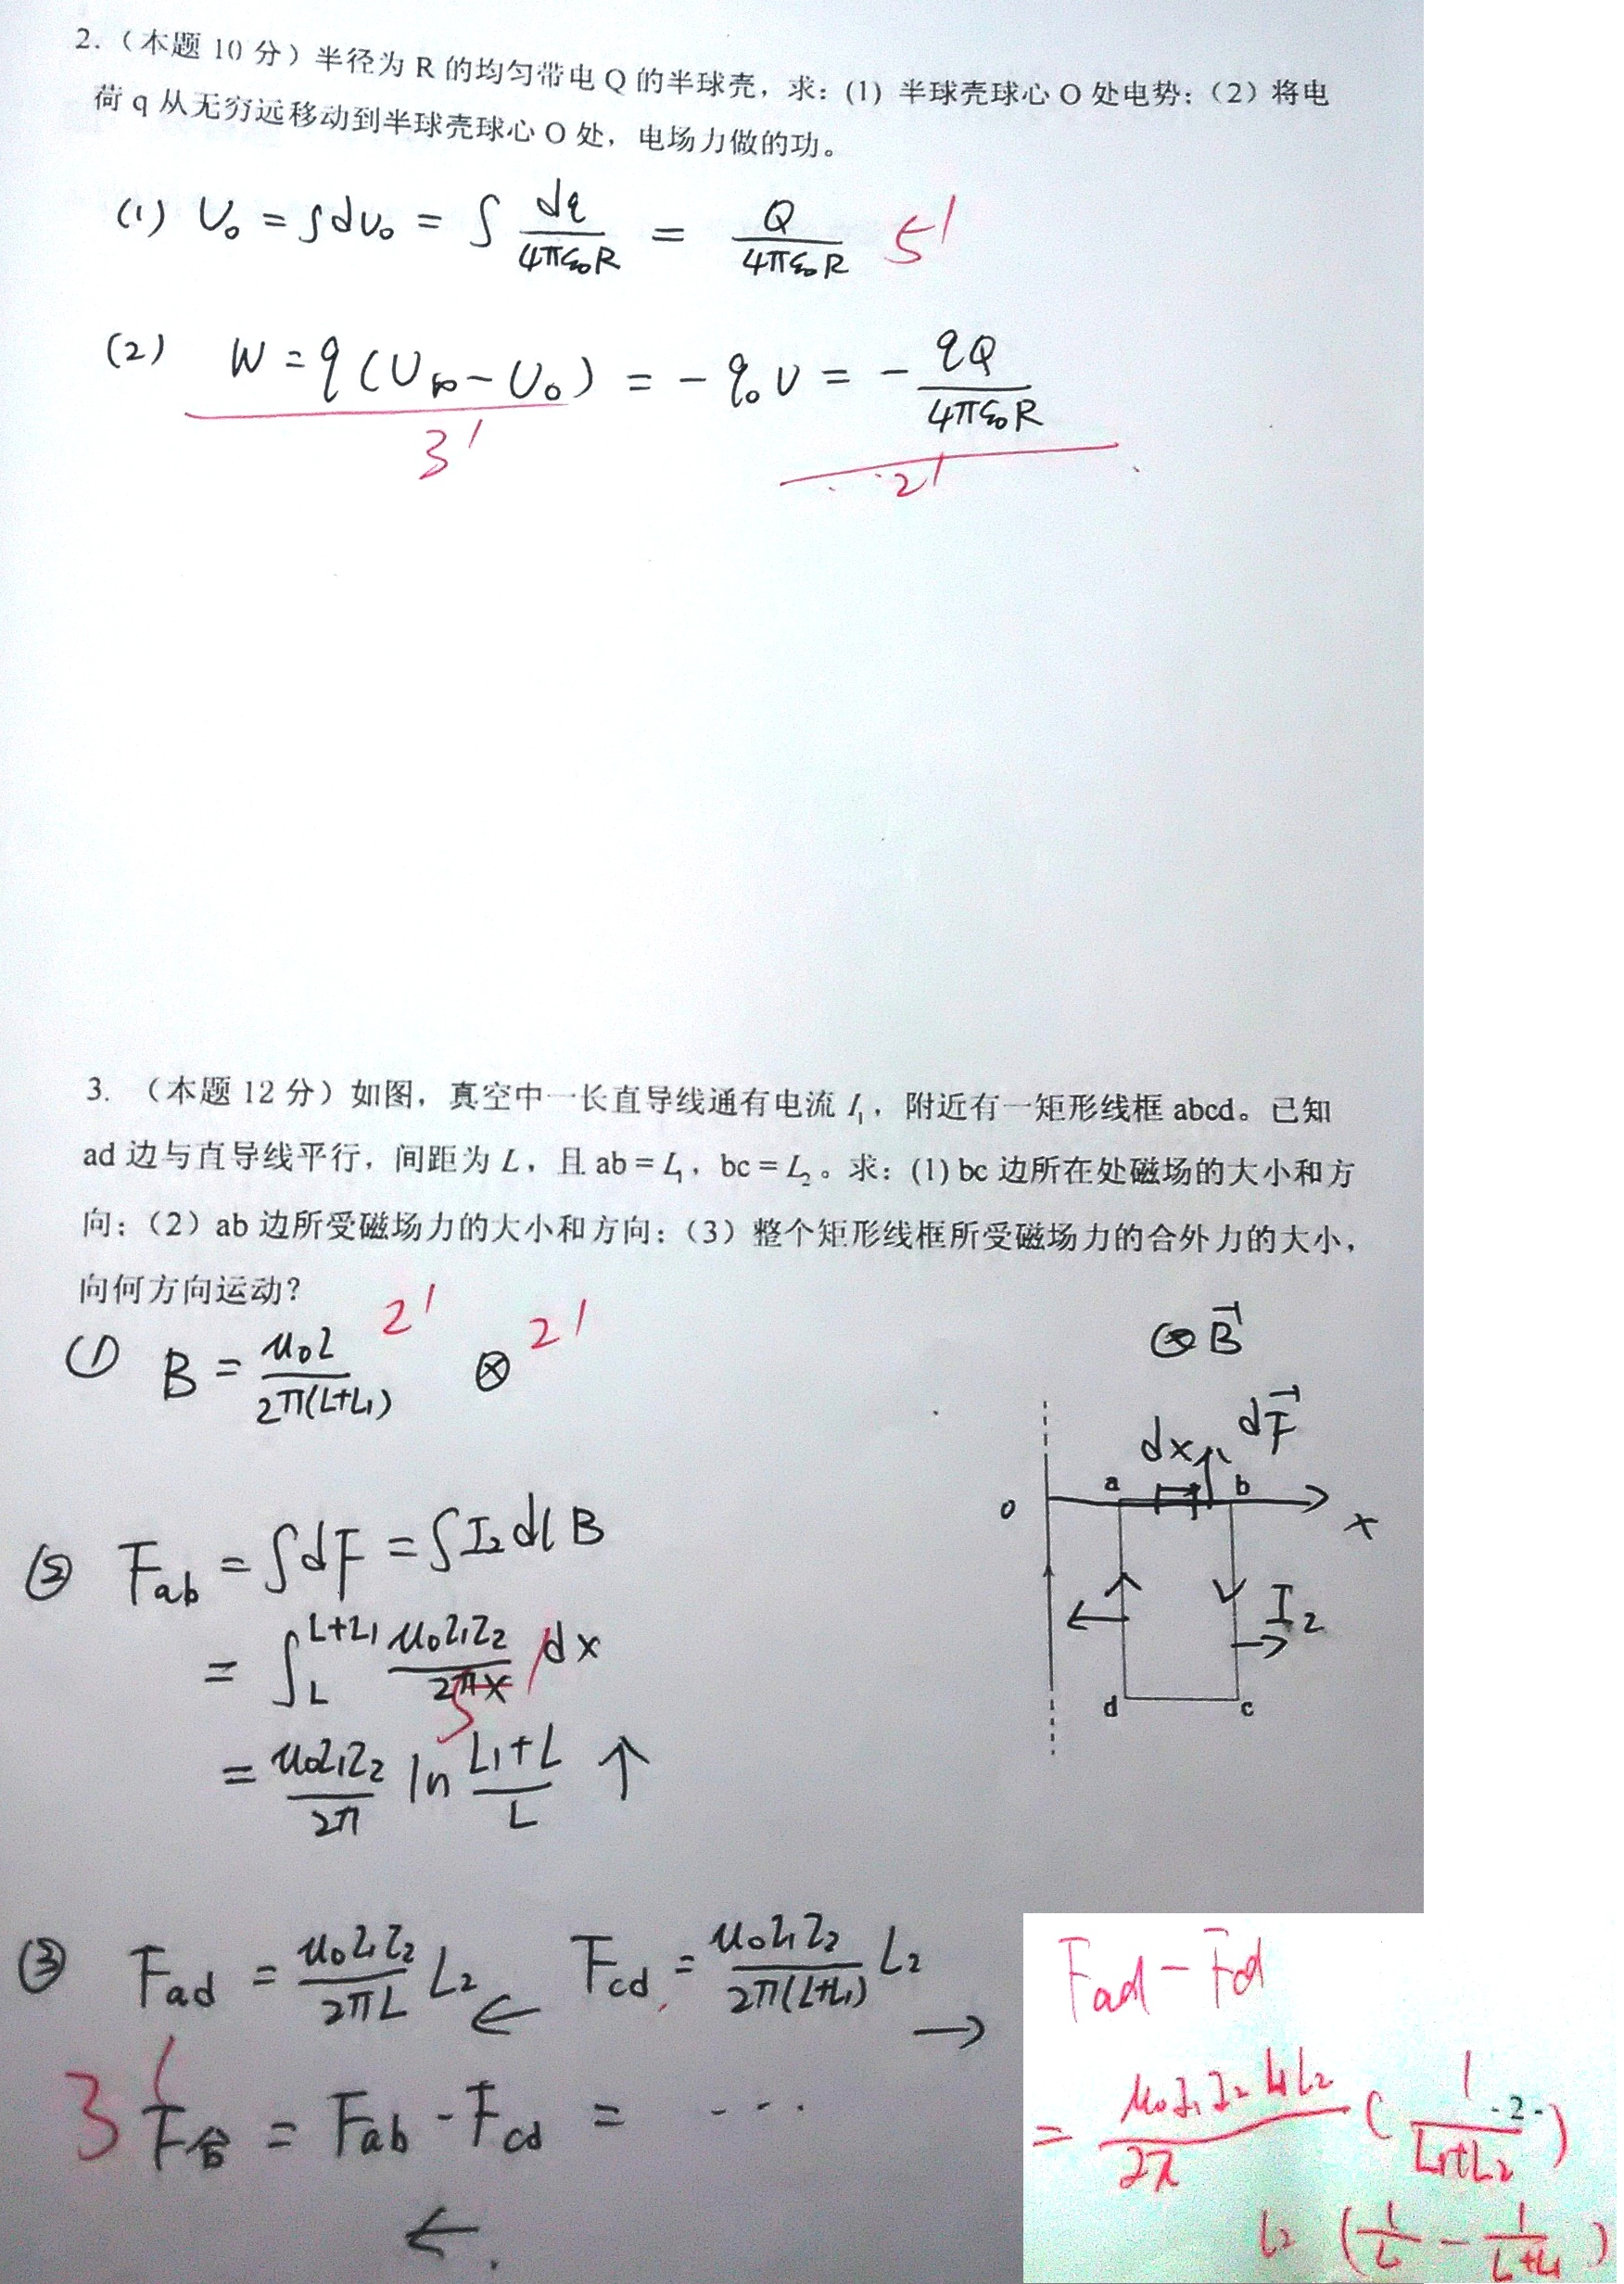 2.（本题 10 分）半径为 R 的均匀带电 Q 的半球壳，求：(1) 半球壳球心 O 处电势；（2）将电
荷 q 从无穷远移动到半球壳球心 O 处，电场力做的功。
(1) U₀ = ∫dU₀ = ∫ dq/4πε₀R = Q/4πε₀R 5'
(2) W = q(U∞ - U₀) = - q₀U = - qQ/4πε₀R
3' 2'
3. （本题 12 分）如图，真空中一长直导线通有电流 I₁，附近有一矩形线框 abcd。已知
ad 边与直导线平行，间距为 L，且 ab = L₁，bc = L₂。求：(1) bc 边所在处磁场的大小和方
向；（2）ab 边所受磁场力的大小和方向；（3）整个矩形线框所受磁场力的合外力的大小，
向何方向运动？
① B = μ₀I/2π(L+L₁) 2' ⊗ 2'
⊗ B⃗
dx dF⃗
o a b x
I₂
d c
② Fab = ∫dF = ∫I₂dlB
= ∫_L^{L+L₁} μ₀I₁I₂/2πx dx
5'
= μ₀I₁I₂/2π ln L₁+L/L ↑
③ Fad = μ₀I₁I₂/2πL L₂ ← Fcd = μ₀I₁I₂/2π(L+L₁) L₂ →
3' F合 = Fab - Fcd = ...
←.
Fad - Fcd
= μ₀I₁I₂ L₂/2π ( 1/L₁+L₂ )
- 2 -
L₂ ( 1/L - 1/L+L₁ )